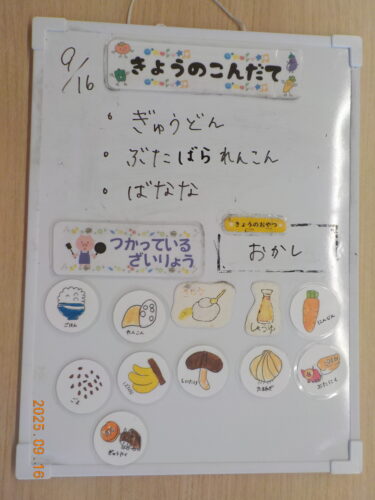 9/16
きょうのこんだて
・ぎゅうどん
・ぶたばられんこん
・ばなな
つかっている
ざいりょう
きょうのおやつ
おかし
ごはん
れんこん
しょうゆ
にんじん
ごま
ばなな
しいたけ
たまねぎ
ぶたにく
ぎゅうにく
2025.09.16